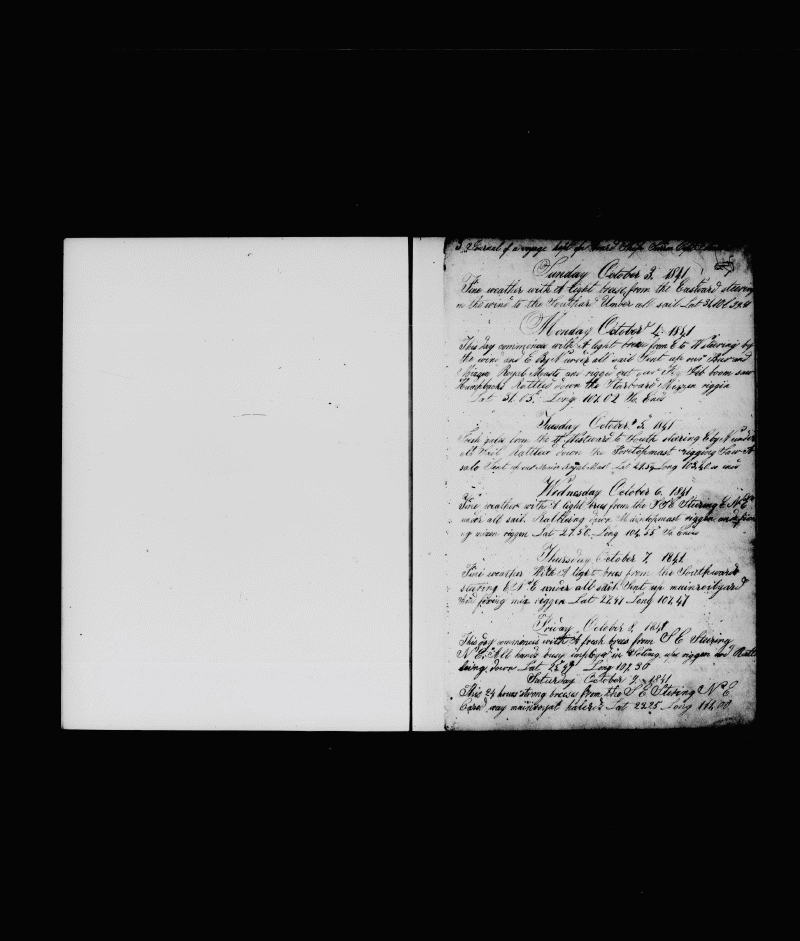 Journal of a voyage kept on board Ship
Sunday October 3. 1841
Fine weather with A light brees from the Eastward steering
on the wind to the Southard Under all sail Lat 31.10
Monday October 4. 1841
This day commences with A light brees from E to N steering by
the wind and E By N under all sail Sent up our Fore and
Mizen Royal Masts and rigged out our Fly Jib boom saw
Humpbacks Rattled down the Starboard Mizzen riggin
Lat 31.03. Long 101.02 So Ends
Tuesday October 5. 1841
Fresh gales from the Westward to South steering E by N under
all Sail Rattled down the Foretopmast rigging Saw A
sale Sent up our Main Royal Mast Lat Long 103.40 so ends
Wednesday October 6. 1841
Fine weather with A light brees from the SSE Stering E N E
under all sail. Rattleing down Maintopmast riggen and
up mizen riggen Lat 27.50. Long 104.55 So Ends
Thursday October 7. 1841
Fine weather With A light brees from the Southward
stearing E N E under all sail. Sent up mainroilyard
and fixing miz riggen Lat 27.47 Long 107.47
Friday October 8. 1841
This day commences with A fresh brees from S E Stering
N E. All hands busy imployd in Seting up riggen and Ratt
leing down Lat Long 109.50
Saturday October 9. 1841
This 24 hours strong breeses from the S E Stering N E
Card way mainroyal haleres Lat 22.25 Long 111.00